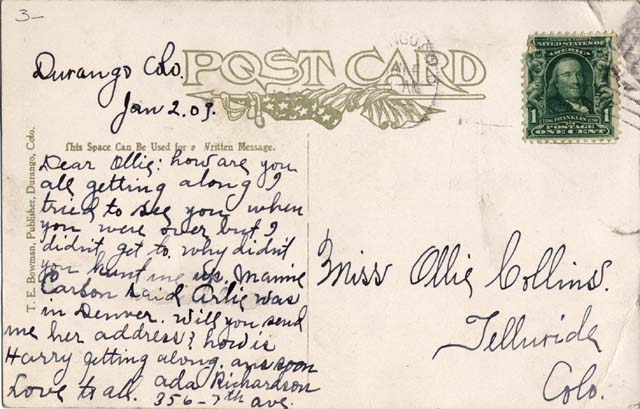 3-
POST CARD
Durango Colo.
Jan 2. 09.
This Space Can Be Used for a Written Message.
T. E. Bowman, Publisher, Durango, Colo.
Dear Ollie: how are you
all getting along I
tried to see you when
you were over but I
didn't get to. why didn't
you hunt me up. Mamie
Carbon said Arlie was
in Denver. Will you send
me her address? how is
Harry getting along. ans soon
Love to all. Ada Richardson
356-7th ave.
UNITED STATES OF
AMERICA
1 FRANKLIN 1
POSTAGE
ONE CENT
Miss Ollie Collins.
Telluride
Colo.